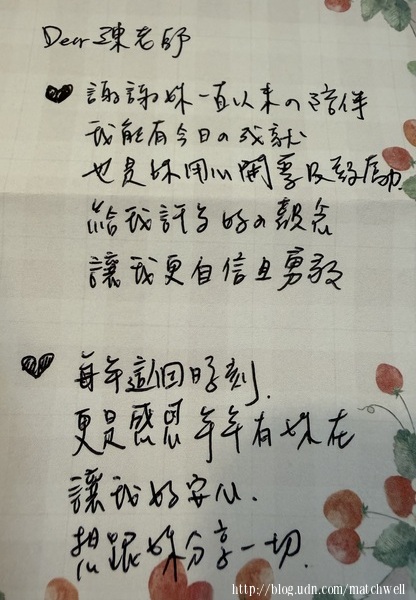 Dear 陳老師
♥ 謝謝妳一直以來の陪伴
我能有今日の成就
也是妳用心開導及鼓勵
給我許多好の觀念
讓我更自信且勇敢
♥ 每年這個時刻.
更是感恩年年有妳在
讓我好安心.
想跟妳分享一切.
http://blog.udn.com/matchwell